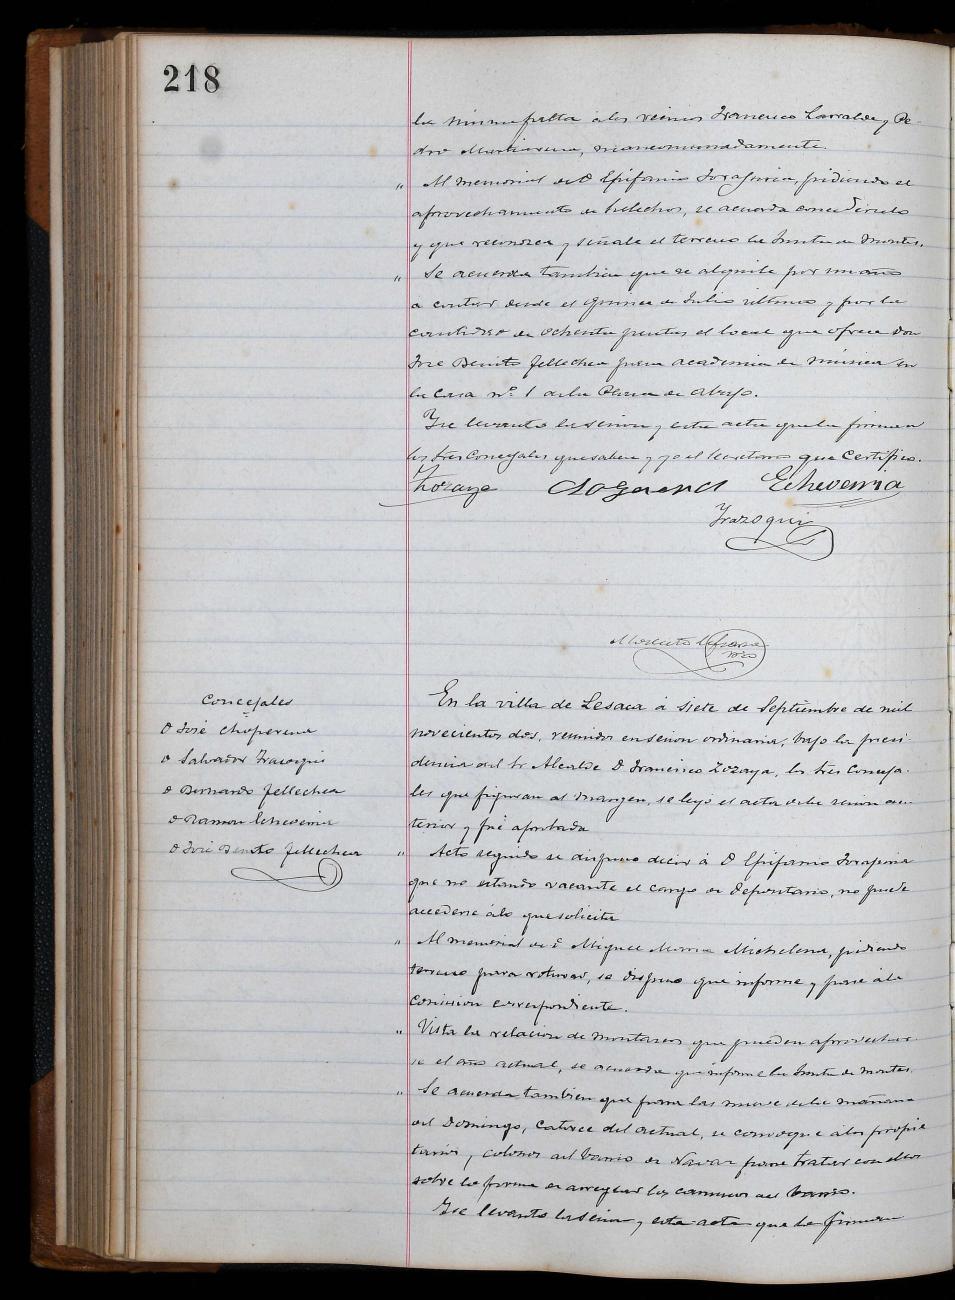 218
la misma falta á los vecinos Francisco Larralde y Pe-
dro Martiarena, mancomunadamente.
" Al memorial de D Epifanio Iragorria, pidiendo el
aprovechamiento de helechos, se acuerda concedérselo
y que reconozca y señale el terreno la Junta de Montes.
" Se acuerda tambien que se alquile por un año
a contar desde el quince de Julio último y por la
cantidad de ochenta pesetas el local que ofrece don
José Benito Tellechea para academia de música en
la casa nº 1 de la Plaza de abajo.
Y se levantó la sesion y esta acta que la firman
los tres Concejales que saben y yo el Secretario que Certifico.
Zozaya Echeverria
Irazoqui
Concejales
D José Choperena
D Salvador Irazoqui
D Bernardo Tellechea
D Ramon Echeverria
D José Benito Tellechea
En la villa de Lesaca á siete de Septiembre de mil
novecientos dos, reunidos en sesion ordinaria, bajo la presi-
dencia del Sr Alcalde D Francisco Zozaya, los tres Conceja-
les que figuran al margen, se leyó el acta de la sesion an-
terior y fué aprobada
" Acto seguido se dispuso decir á D Epifanio
que no estando vacante el cargo de Depositario, no puede
accederse á lo que solicita
" Al memorial de D Miguel Maria Michelena, pidiendo
terreno para roturar, se dispuso que informe y pase á la
Comision correspondiente.
" Vista la relacion de montazos que pueden aprovechar-
se el año actual, se acuerda que informe la Junta de montes.
" Se acuerda tambien que para las nueve de la mañana
del Domingo, catorce del actual, se convoque á los propie-
tarios y colonos del barrio de Navaz para tratar con ellos
sobre la forma de arreglar los caminos del barrio.
Y se levantó la sesion y esta acta que la firman